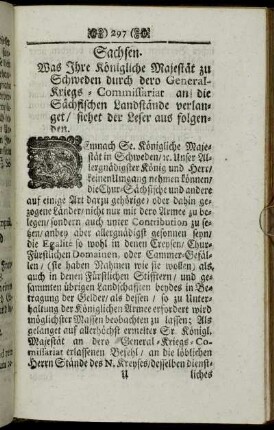 297
Sachsen.
Was Ihre Königliche Majestät zu
Schweden durch dero General-
Kriegs-Commissariat an die
Sächsischen Landstände verlan-
get/ siehet der Leser aus folgen-
den.
DEmnach Se. Königliche Maje-
stät in Schweden/ ꝛc. Unser Al-
lergnädigster König und Herr/
keinen Umgang nehmen können/
die Chur-Sächsische und andere
auf einige Art darzu gehörige/ oder dahin ge-
zogene Länder/ nicht nur mit dero Armee zu be-
legen/ sondern auch unter Contribution zu se-
tzen/ anbey aber allergnädigst gesonnen seyn/
die Egalité so wohl in denen Creysen/ Chur-
Fürstlichen Domainen, oder Cammer-Gefäl-
len/ (sie haben Nahmen wie sie wollen) als
auch in denen Fürstlichen Stifftern/ und ge-
sammten übrigen Landschafften beydes in Be-
tragung der Gelder/ als dessen/ so zu Unter-
haltung der Königlichen Armee erfordert wird
möglichster Massen beobachten zu lassen; Als
gelanget auf allerhöchst ermelter Sr. Königl.
Majestät an dero General-Kriegs-Co-
missariat erlassenen Befehl/ an die löblichen
Herrn Stände des N. Kreyses/ desselben dienst-
U liches